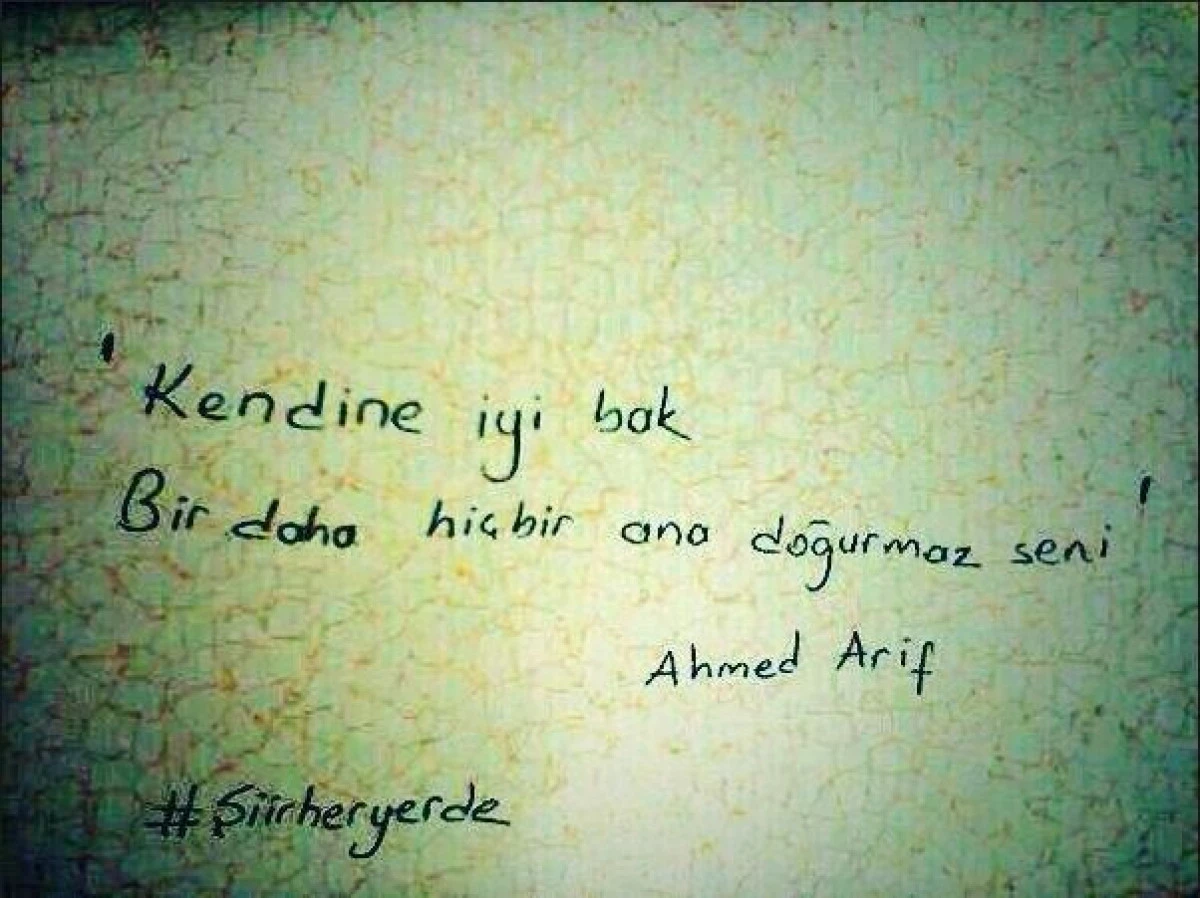 ' Kendine iyi bak
Bir daha hiçbir ana doğurmaz seni '
Ahmed Arif
#Şiirheryerde